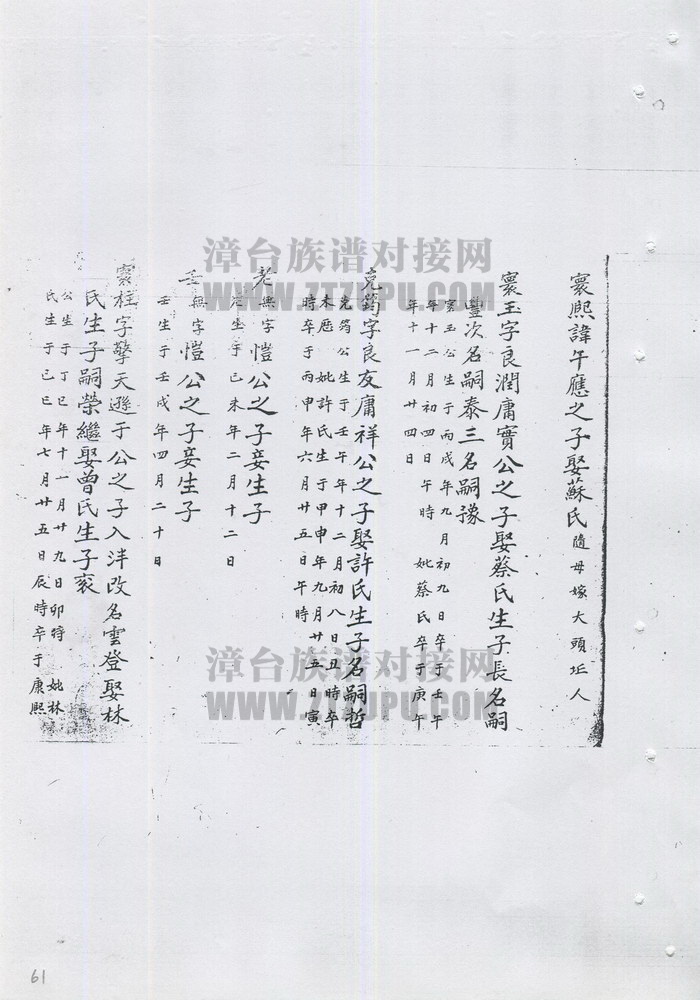 寰熙諱午應之子娶蘇氏隨母嫁大頭坵人
寰玉字良潤庸實公之子娶蔡氏生子長名嗣
豐次名嗣泰三名嗣豫
寰玉公生于丙戌年九月初九日卒于壬午
年十二月初四日午時 妣蔡氏卒于庚午
年十一月廿四日
克筠字良友庸祥公之子娶許氏生子名嗣哲
克筠公生于壬午年十二月初八日丑時卒
未歷 妣許氏生于甲申年九月廿五日寅
時卒于丙申年六月廿五日午時
老無字愷公之子妾生子
生于己未年二月十二日
壬無字愷公之子妾生子
壬生于壬戌年四月二十日
寰柱字擎天遜于公之子入泮改名雲登娶林
氏生子嗣榮繼娶曾氏生子衮
公生于丁巳年十一月廿九日卯時 妣林
氏生于己巳年七月廿五日辰時卒于康熙
漳台族谱对接网
WWW.ZTZUPU.COM
漳台族谱对接网
WWW.ZTZUPU.COM
61